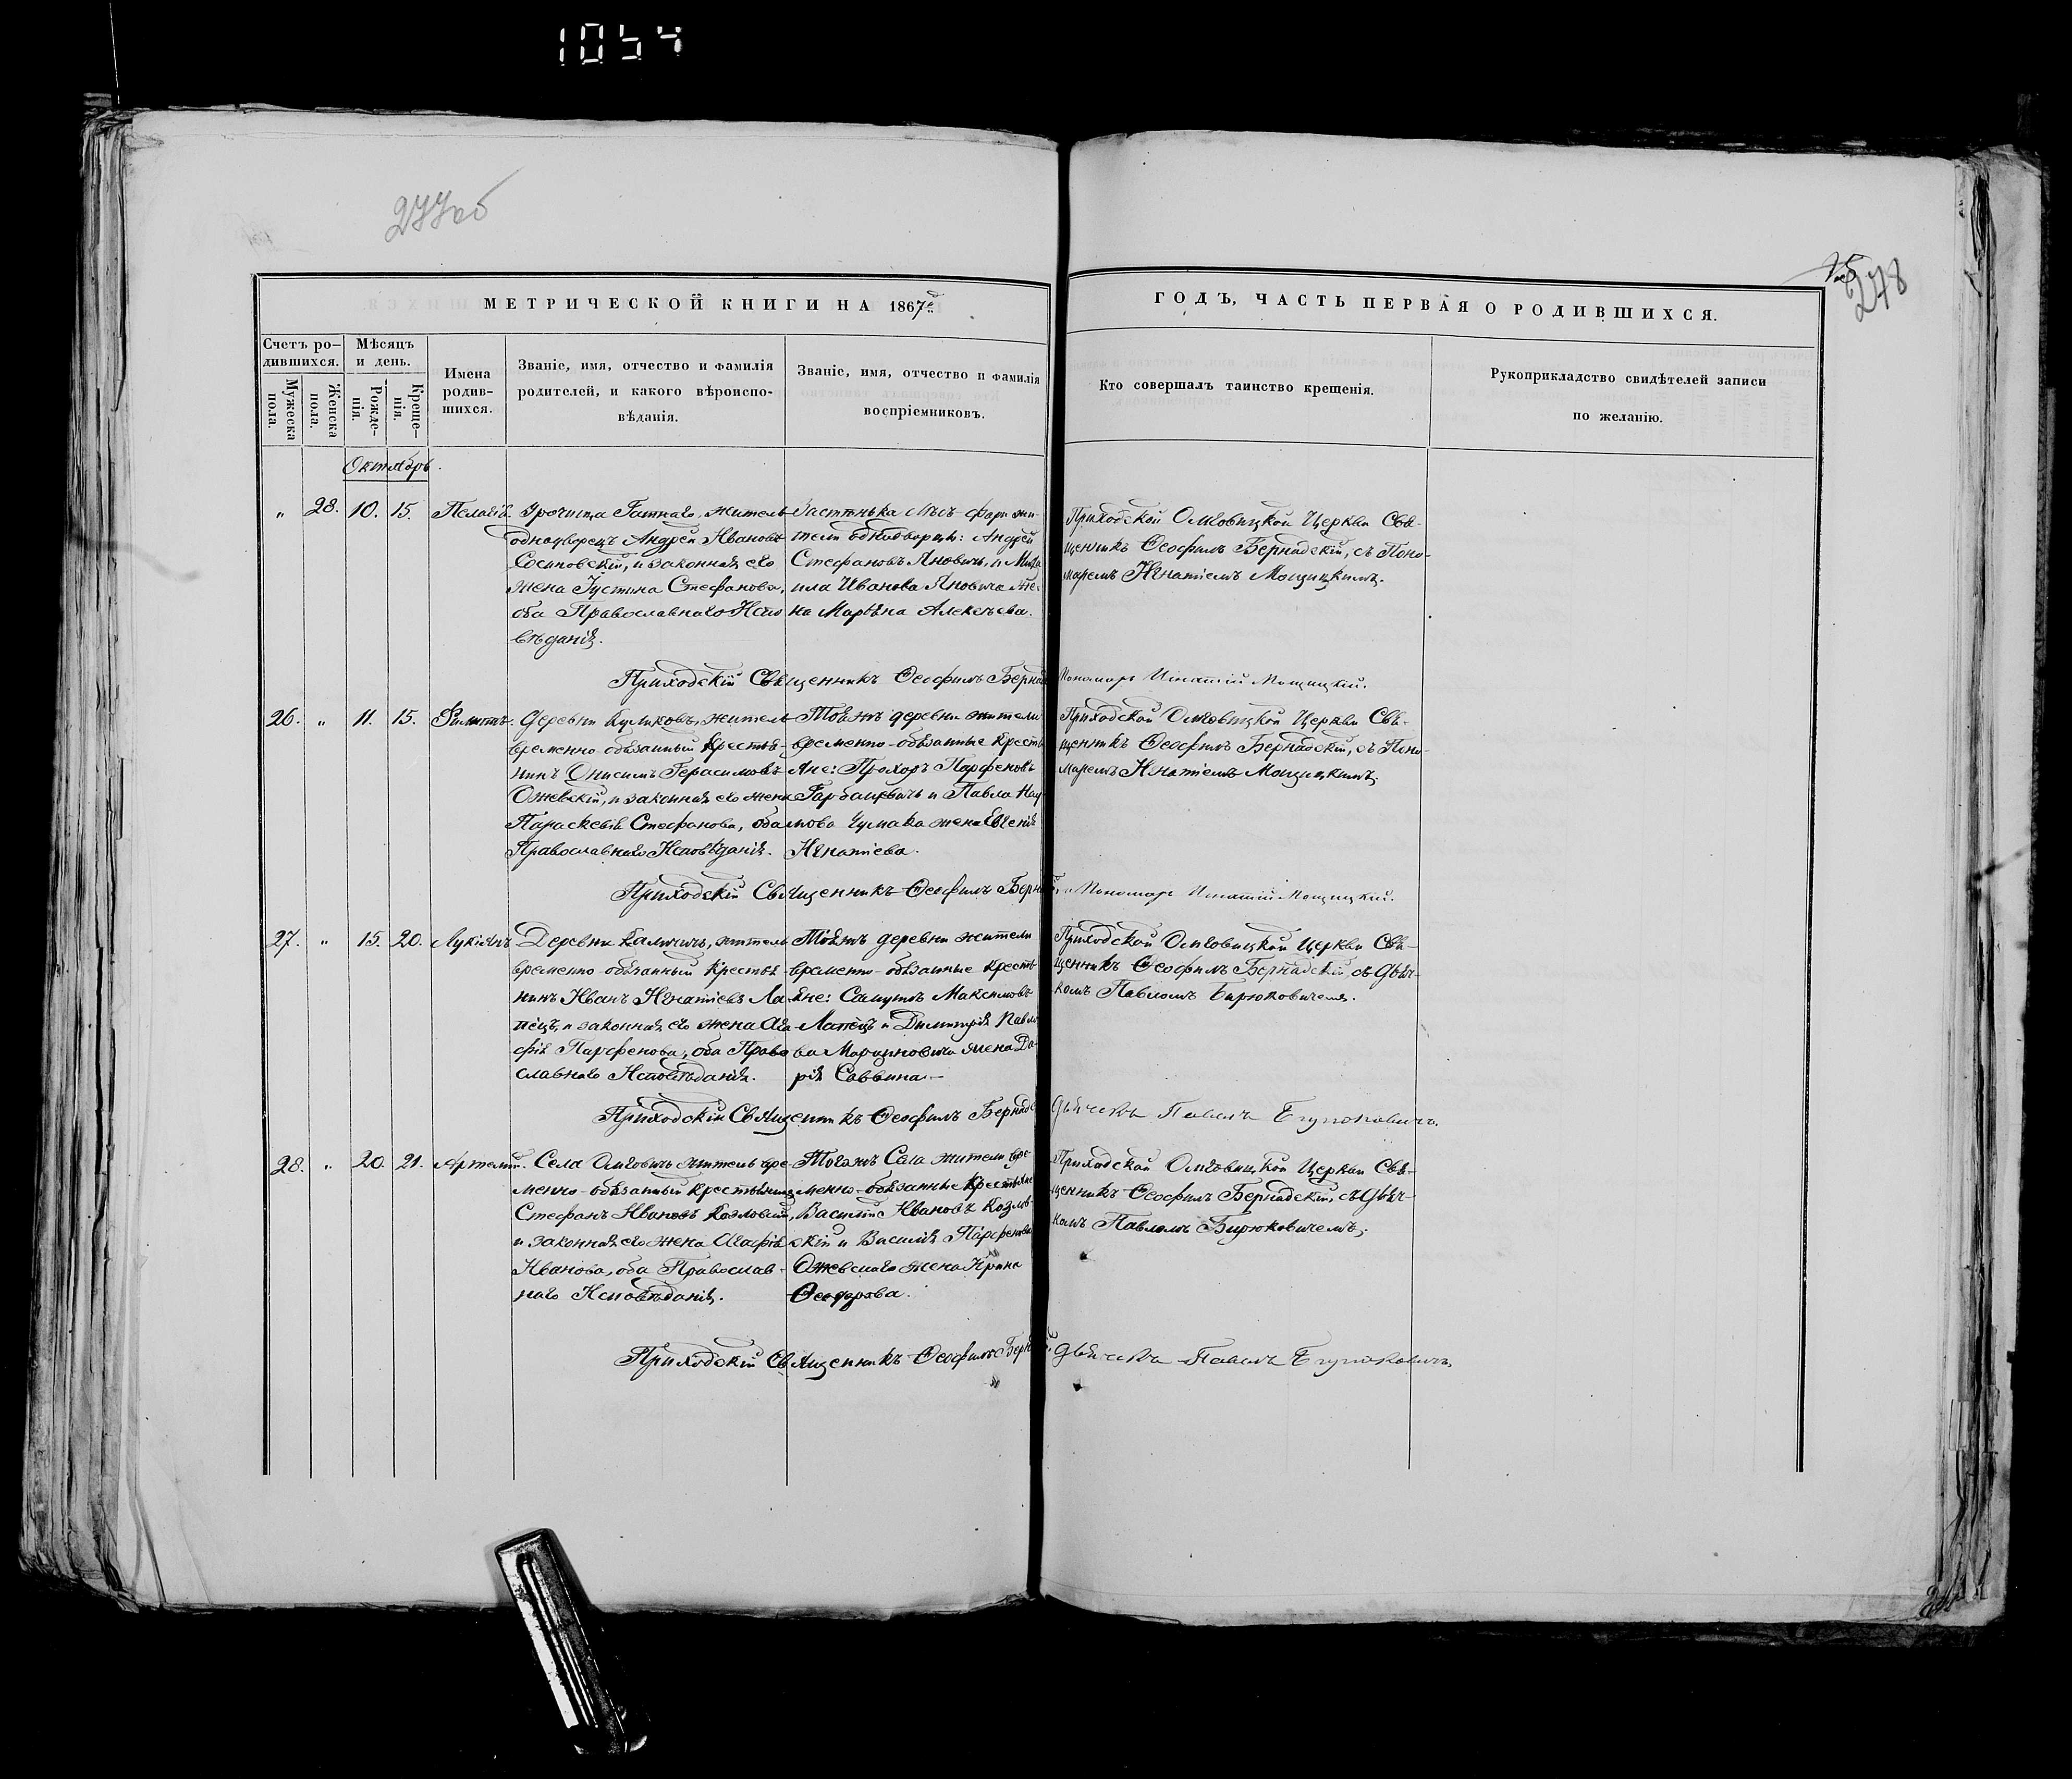 1054
277об
278
МЕТРИЧЕСКОЙ КНИГИ НА 1867й
ГОДЪ, ЧАСТЬ ПЕРВАЯ О РОДИВШИХСЯ.
Счетъ ро-
дившихся.
Мужеска
пола.
Женска
пола.
Мѣсяцъ
и день.
Рожде-
нія.
Креще-
нія.
Имена
родив-
шихся.
Званіе, имя, отчество и фамилія
родителей, и какого вѣроиспо-
вѣданія.
Званіе, имя, отчество и фамилія
воспріемниковъ.
Кто совершалъ таинство крещенія.
Рукоприкладство свидѣтелей записи
по желанію.
Октябрь.
" 28. 10. 15. Пелагія.
Урочища Гатнаго, житель
однодворецъ Андрей Ивановъ
Сосновскій, и законная его
жена Іустина Стефанова,
оба Православнаго Испо
вѣданія.
Застѣнка жи-
тели однодворцы: Андрей
Стефановъ Яновичъ, и Миха
ила Иванова Яновича же-
на Марѣна Алексѣева.
Приходской Омговицкой Церкви Свя-
щенникъ Ѳеофилъ Бернадскій, съ Поно-
маремъ Игнатіемъ Мощицкимъ.
Приходскій Священникъ Ѳеофилъ Бернад
Пономарь Игнатій Мощицкій.
26. " 11. 15. Филиппъ.
Деревни Куликовъ, житель
временно-обязанный Крестья-
нинъ Онисимъ Герасимовъ
Ожевскій, и законная его жена
Параскевія Стефанова, оба
Православнаго Исповѣданія.
Тояжъ деревни жители
временно-обязанные Кресть
яне: Прохоръ Парфеновъ
Горбацевичъ и Павла Нау-
мова Чумака жена Евгенія
Игнатіева.
Приходской Омговицкой Церкви Свя-
щенникъ Ѳеофилъ Бернадскій, съ Поно-
маремъ Игнатіемъ Мощицкимъ.
Приходскій Священникъ Ѳеофилъ Берн
Пономарь Игнатій Мощицкій.
27. " 15. 20. Лукіянъ
Деревни Калчичъ, житель
временно-обязанный Крестья
нинъ Иванъ Игнатіевъ Ла-
пецъ, и законная его жена Ага-
фія Парфенова, оба Право
славнаго Исповѣданія.
Тояжъ деревни жители
временно-обязанные Кресть
яне: Самуилъ Максимовъ
Лапецъ и Димитрія Павло
ва Марциновича жена Да-
рія Саввина.
Приходской Омговицкой Церкви Свя-
щенникъ Ѳеофилъ Бернадскій, съ Дьяч-
комъ Павломъ Бирюковичемъ.
Приходскій Священникъ Ѳеофилъ Бернадс
Дьячекъ Павелъ Бирюковичъ.
28. " 20. 21. Артемій.
Села Омговичъ житель вре-
менно-обязанный Крестьянинъ
Стефанъ Ивановъ Козловскій,
и законная его жена Агафія
Иванова, оба Православ-
наго Исповѣданія.
Тогожъ Села жители вре-
менно-обязанные Крестьяне
Василій Ивановъ Козлов-
скій и Василія Парфенова
Ожевскаго жена Ирина
Ѳеодорова.
Приходской Омговицкой Церкви Свя-
щенникъ Ѳеофилъ Бернадскій, съ Дьяч-
комъ Павломъ Бирюковичемъ.
Приходскій Священникъ Ѳеофилъ Берн
Дьячекъ Павелъ Бирюковичъ.